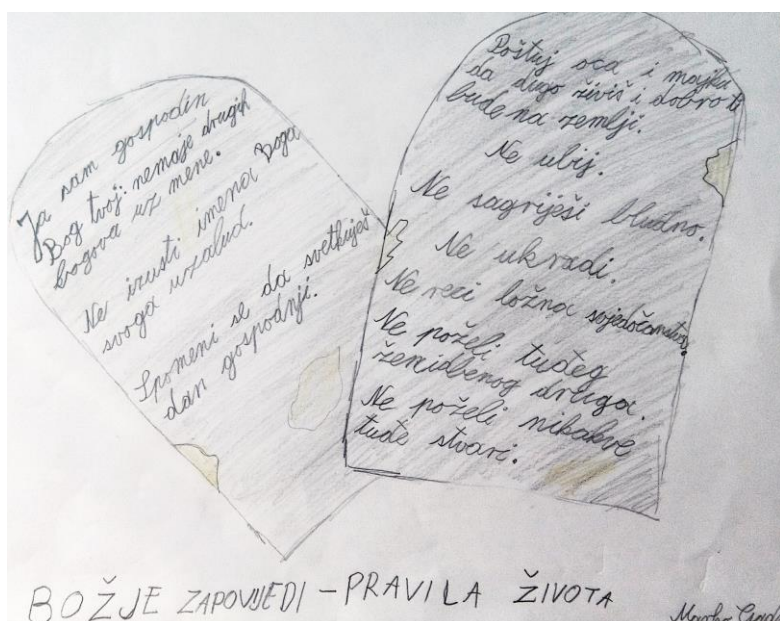 Ja sam gospodin
Bog tvoj: nemaje drugih
bogova uz mene.
Ne izusti imena Boga
svoga uzalud.
Spomeni se da svetkuješ
dan gospodnji.
Poštuj oca i majku
da dugo živiš i dobro ti
bude na zemlji.
Ne ubij.
Ne sagriješi bludno.
Ne ukradi.
Ne reci ložna svjedočanstva.
Ne poželi tuđeg
ženidbenog druga.
Ne poželi nikakve
tuđe stvari.
BOŽJE ZAPOVIJEDI - PRAVILA ŽIVOTA
Marko